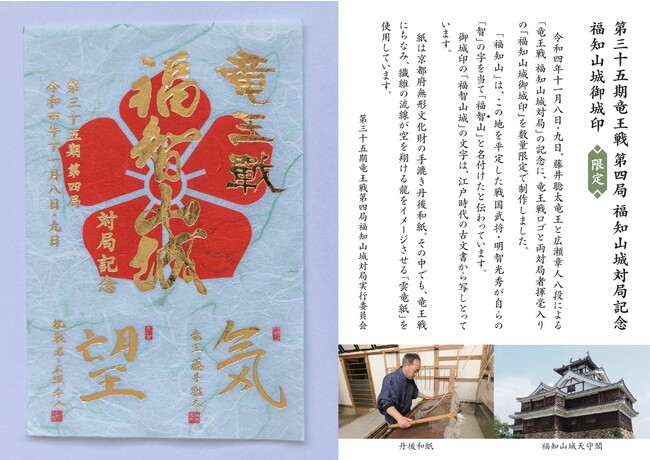 竜王戦
福智山城
対局記念
第三十五期 第四局
令和四年十一月八日・九日
気
望
第三十五期竜王戦 第四局 福知山城対局記念
福知山城御城印
限定
令和四年十一月八日・九日、藤井聡太竜王と広瀬章人八段による
「竜王戦 福知山城対局」の記念に、竜王戦ロゴと両対局者揮毫入り
の「福知山城御城印」を数量限定で制作しました。
「福知山」は、この地を平定した戦国武将・明智光秀が自らの
「智」の字を当て「福智山」と名付けたと伝わっています。
御城印の「福智山城」の文字は、江戸時代の古文書から写しとって
います。
紙は京都府無形文化財の手漉き丹後和紙。その中でも、竜王戦
にちなみ、繊維の流線が空を翔ける龍をイメージさせる「雲竜紙」を
使用しています。
第三十五期竜王戦第四局福知山城対局実行委員会
丹後和紙
福知山城天守閣